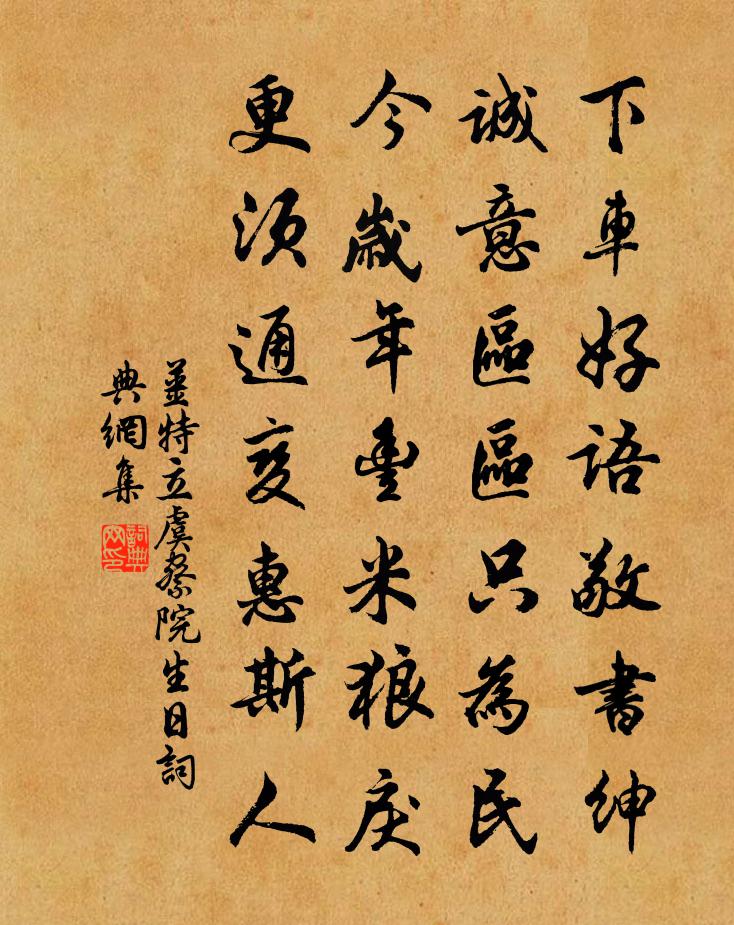 下車好語敬書紳
誠意區區只為民
今歲年豐米狼戾
更須通變惠斯人
薑特立虞察院生日詞
典網集
詞典
网印